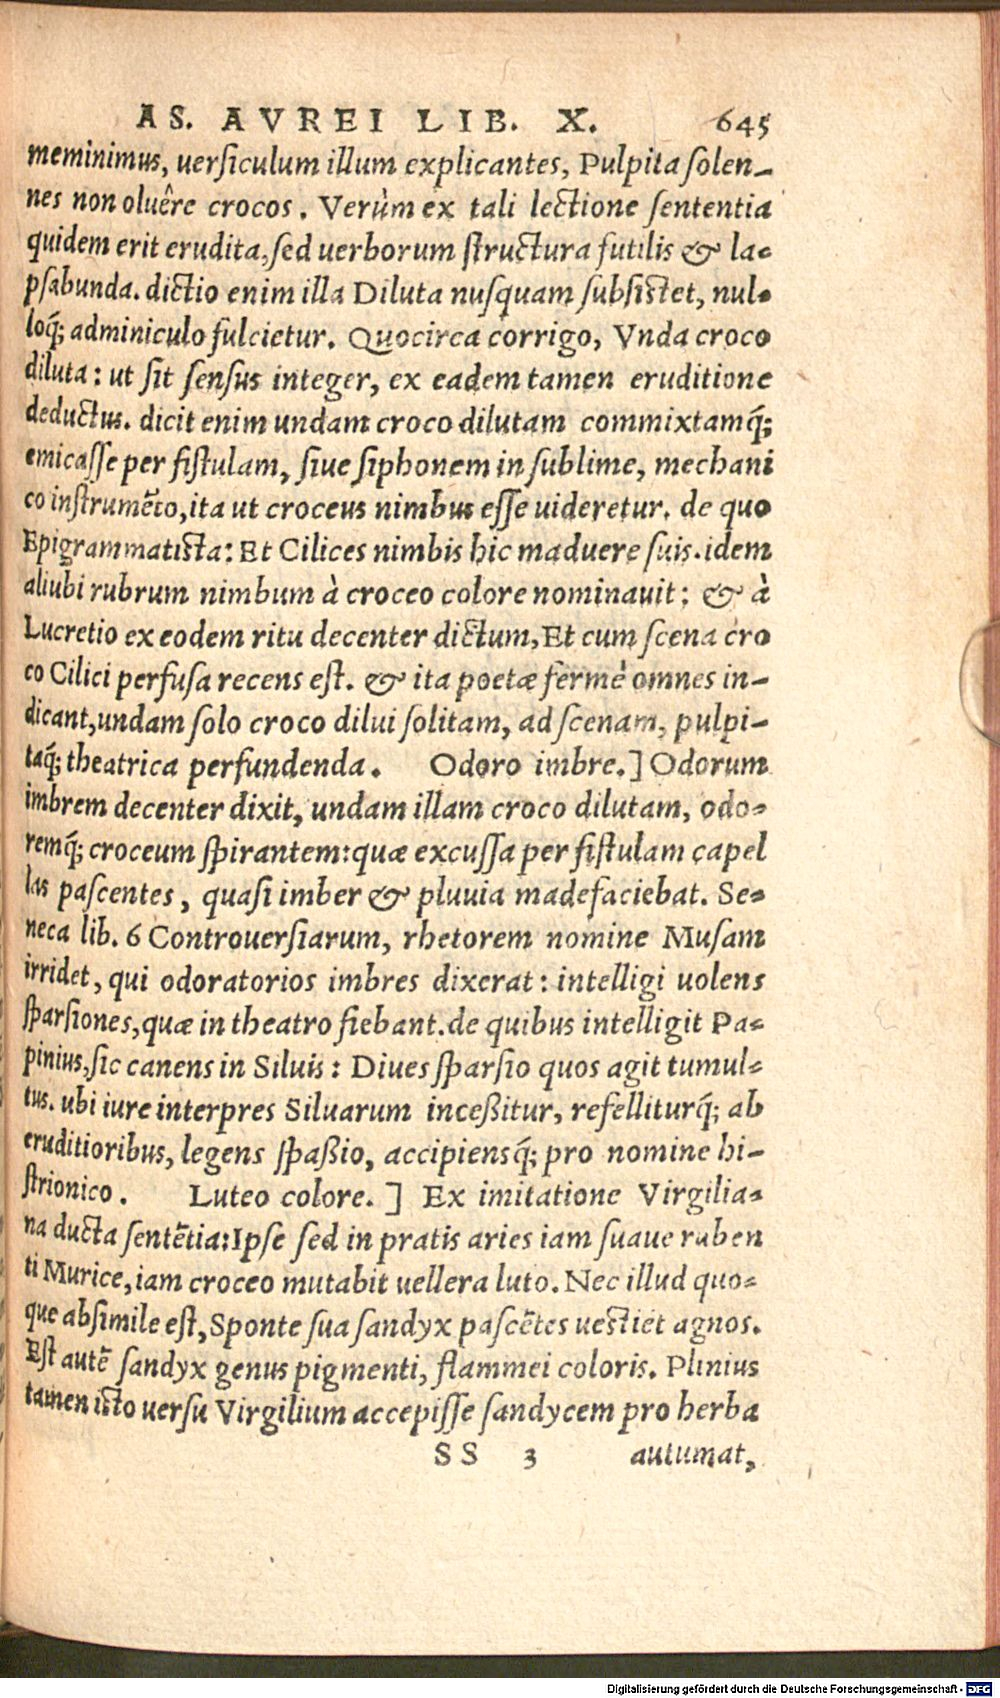 AS. AVREI LIB. X. 645
meminimus, uersiculum illum explicantes, Pulpita solen-
nes non oluêre crocos. Verùm ex tali lectione sententia
quidem erit erudita, sed uerborum structura futilis & la-
psabunda. dictio enim illa Diluta nusquam subsistet, nul-
loq́; adminiculo fulcietur. Quocirca corrigo, Vnda croco
diluta: ut sit sensus integer, ex eadem tamen eruditione
deductus. dicit enim undam croco dilutam commixtamq́;
emicasse per fistulam, siue siphonem in sublime, mechani
co instrumẽto, ita ut croceus nimbus esse uideretur. de quo
Epigrammatista: Et Cilices nimbis hic maduere suis. idem
aliubi rubrum nimbum à croceo colore nominauit: & à
Lucretio ex eodem ritu decenter dictum, Et cum scena cro
co Cilici perfusa recens est. & ita poetæ fermè omnes in-
dicant, undam solo croco dilui solitam, ad scenam, pulpi-
taq́; theatrica perfundenda. Odoro imbre.] Odorum
imbrem decenter dixit, undam illam croco dilutam, odo-
remq́; croceum spirantem: quæ excussa per fistulam capel
las pascentes, quasi imber & pluuia madefaciebat. Se-
neca lib. 6 Controuersiarum, rhetorem nomine Musam
irridet, qui odoratorios imbres dixerat: intelligi uolens
sparsiones, quæ in theatro fiebant. de quibus intelligit Pa-
pinius, sic canens in Siluis: Diues sparsio quos agit tumul-
tus. ubi iure interpres Siluarum inceßitur, refelliturq́; ab
eruditioribus, legens spaßio, accipiensq́; pro nomine hi-
strionico. Luteo colore.] Ex imitatione Virgilia-
na ducta sentẽtia: Ipse sed in pratis aries iam suaue ruben
ti Murice, iam croceo mutabit uellera luto. Nec illud quo-
que absimile est, Sponte sua sandyx pascẽtes uestiet agnos.
Est autẽ sandyx genus pigmenti, flammei coloris. Plinius
tamen isto uersu Virgilium accepisse sandycem pro herba
SS 3 autumat,
Digitalisierung gefördert durch die Deutsche Forschungsgemeinschaft - DFG